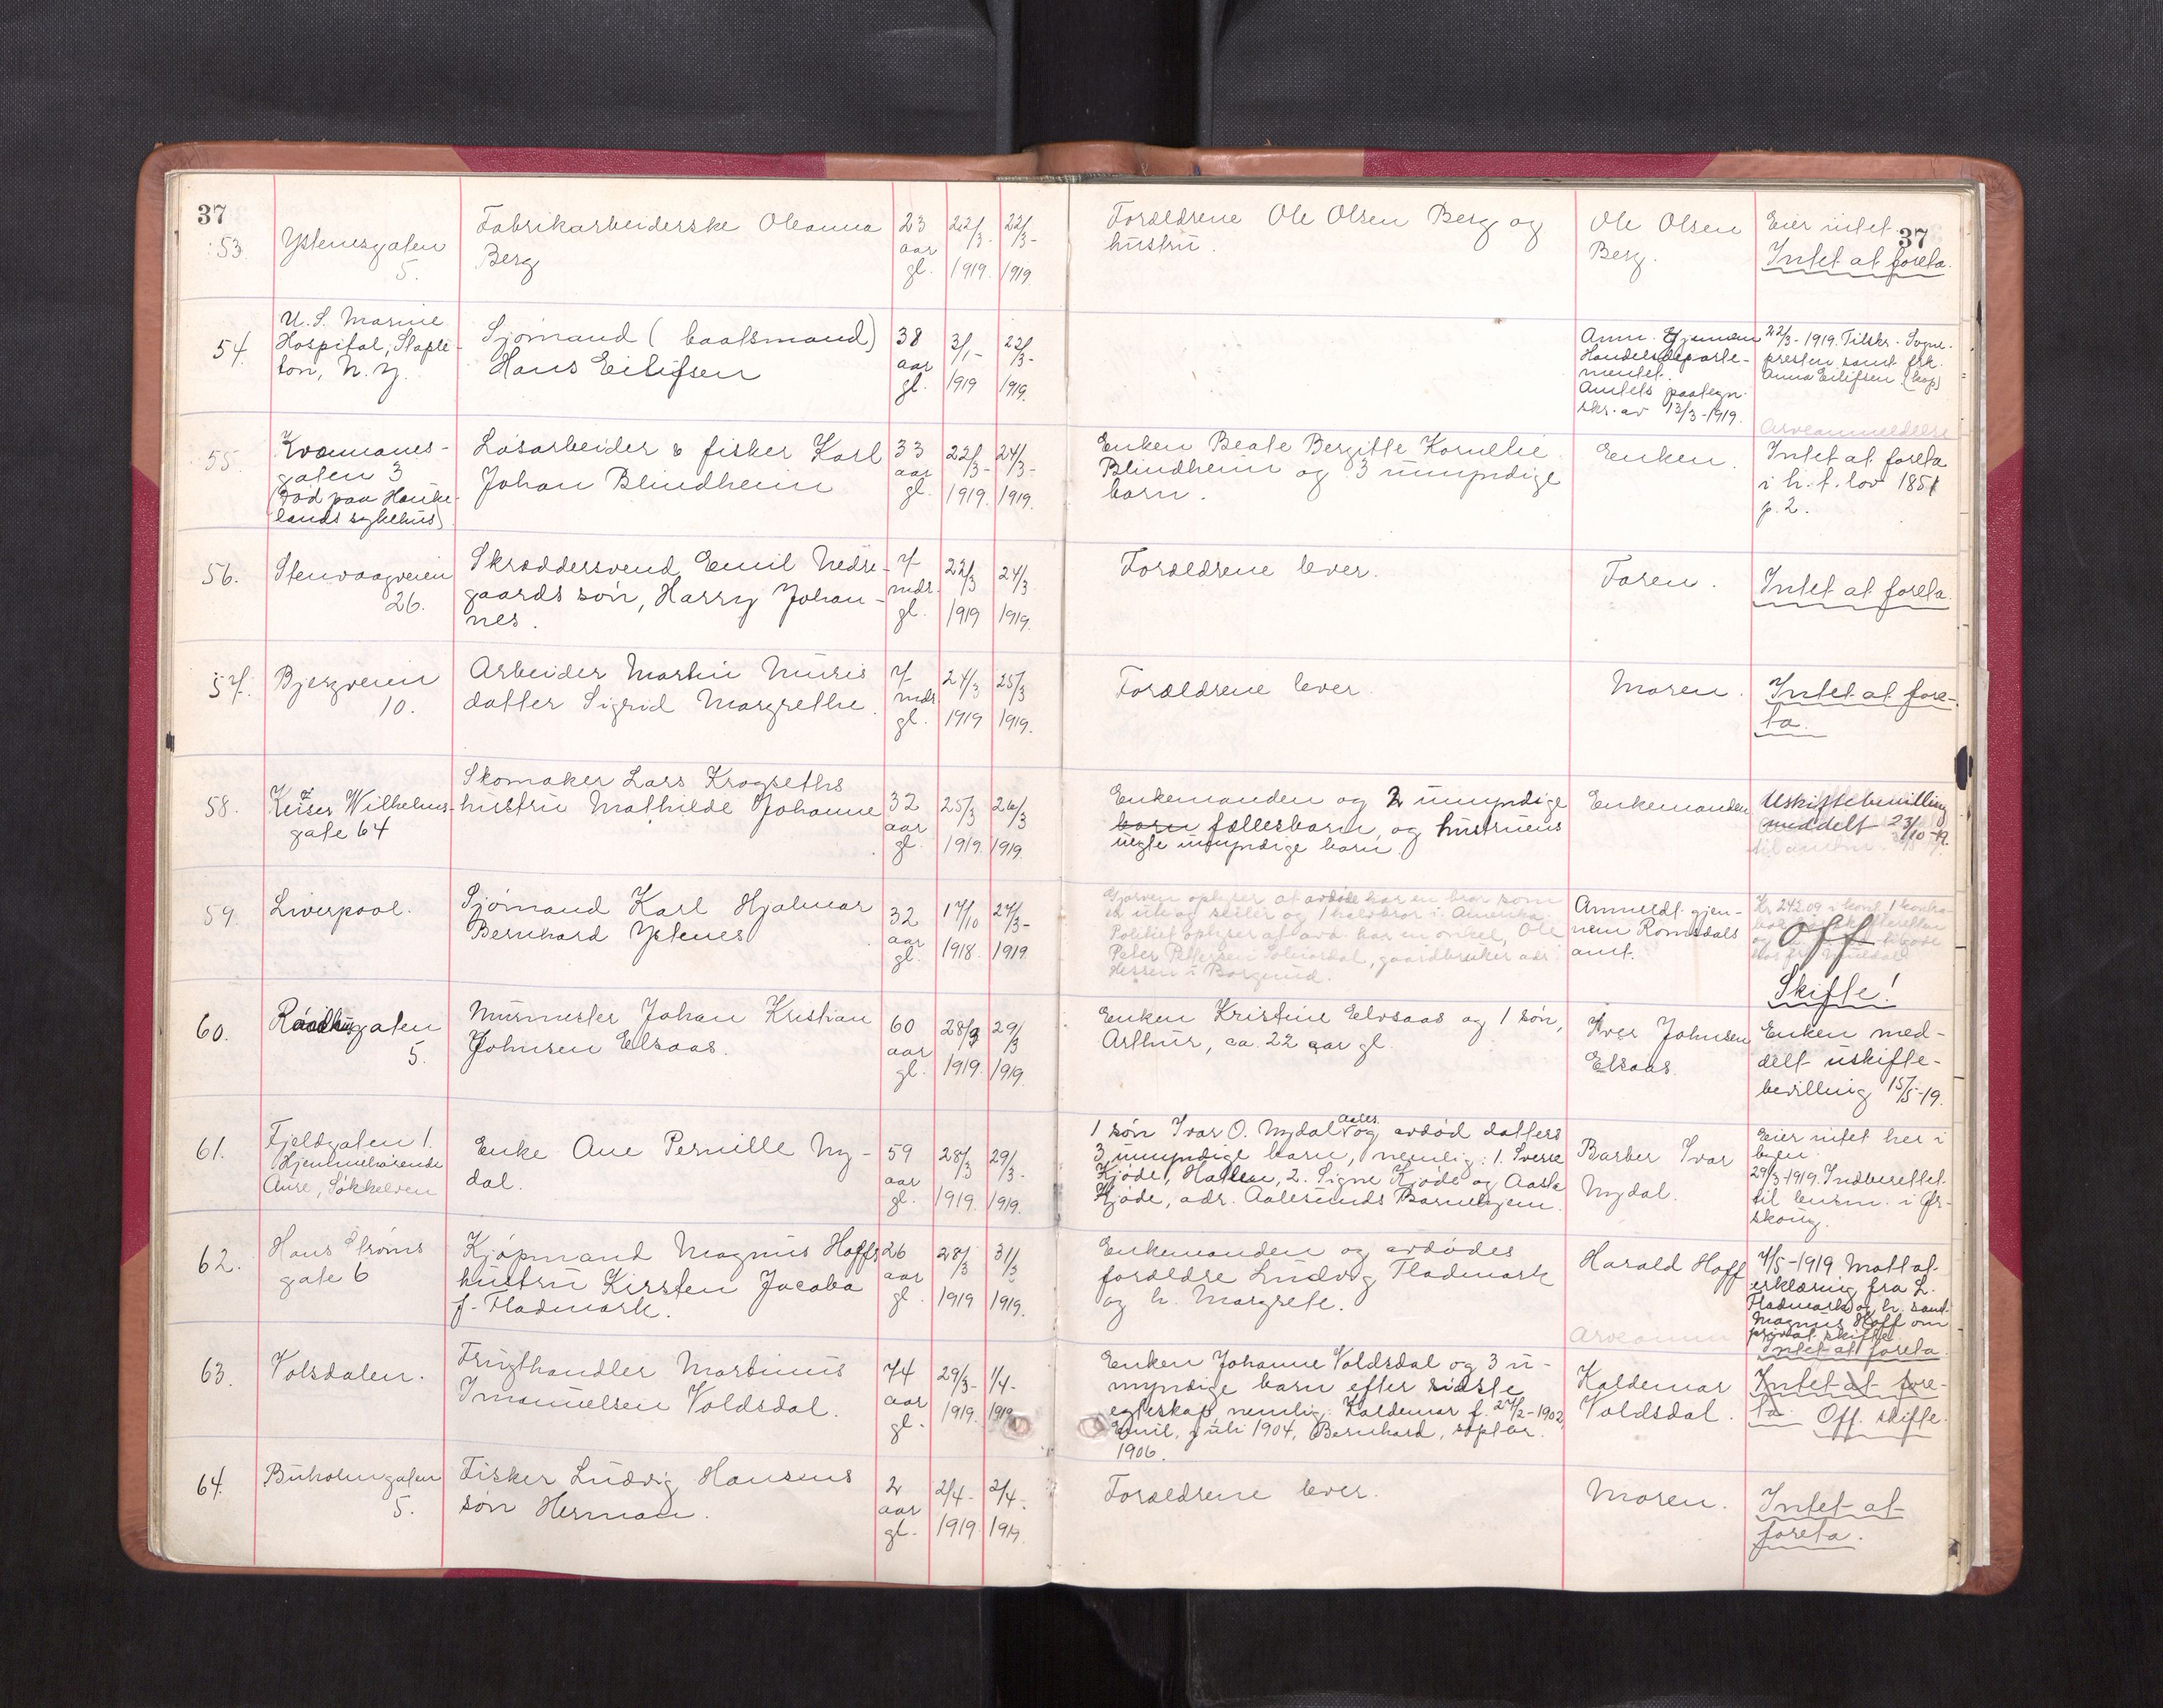 37
37
53.
Ystenesgaten
5.
Fabrikarbeiderske Oleanna
Berg
23
aar
gl.
22/3-
1919.
22/3-
1919
Forældrene Ole Olsen Berg og
hustru
Ole Olsen
Berg.
Eier intet.
Intet at foreta.
54.
U. S. Marine
Hospital, Staple-
ton, N. Y.
Sjømand (baatsmand)
Hans Eilifsen
38
aar
gl.
3/1-
1919
22/3-
1919.
Anm. gjennem
Handelsdeparte-
mentet.
Amtets paategn.
skr. av 13/3-1919.
22/3-1919. Tilskr. Sogne-
presten samt frk.
Anna Eilifsen (kop)
55.
Kvennanes-
gaten 3
(Død paa Hauke-
lands sykehus)
Løsarbeider & fisker Karl
Johan Blindheim
33
aar
gl.
22/3-
1919.
24/3-
1919.
Enken Beate Bergitte Kornelie
Blindheim og 3 umyndige
barn.
Enken.
Arveanmeldelse
Intet at foreta
i h. t. lov 1851
p. 2.
56.
Stenvaagveien
26.
Skræddersvend Emil Nedre-
gaards søn, Harry Johan-
nes.
7
mdr.
gl.
22/3
1919
24/3
1919.
Forældrene lever.
Faren.
Intet at foreta.
57.
Bjergveien
10.
Arbeider Martin Muris
datter Sigrid Margrethe.
7
mdr
gl.
24/3
1919
25/3
1919.
Forældrene lever.
Moren.
Intet at fore-
ta.
58.
Keiser Wilhelms-
gate 64
Skomaker Lars Krogseths
hustru Mathilde Johanne
32
aar
gl.
25/3
1919.
26/3
1919.
Enkemanden og 2 umyndige
barn fællesbarn, og hustruens
uegte umyndige barn.
Enkemanden
Uskiftebevilling
meddelt 23/10-19.
59.
Liverpool.
Sjømand Karl Hjalmar
Bernhard Ystenes
32
aar
gl.
17/10
1918.
27/3-
1919
oplyser at avdøde har en bror som
er ute og seiler og 1 halvbror i Amerika.
Politiet oplyser at avd. har en onkel, Ole
Peter Pettersen, gaardbruker adr.
Hessen i Borgund.
Anmeldt gjen-
nem Romsdals
amt.
Kr. 242.09
Off
Skifte!
60.
Raadhusgaten
5.
Murmester Johan Kristian
Johnsen Elsaas.
60
aar
gl.
28/3
1919.
29/3
1919.
Enken Kristine Elvsaas og 1 søn,
Arthur, ca. 22 aar gl.
Iver Johnsen
Elsaas.
Enken med-
delt uskifte-
bevilling 15/5-19.
61.
Fjeldgaten 1.
Hjemmehørende
Aure, Søkkelven
Enke Ane Pernille Ny-
dal.
59
aar
gl.
28/3
1919.
29/3-
1919.
1 søn Ivar O. Nydal Aales. og avdød datters
3 umyndige barn, nemlig: 1. Sverre
Kjøde, 2. Signe Kjøde og Aasta
Kjøde, adr. Aalesunds Barnehjem.
Barber Ivar
Nydal.
Eier intet her i
byen.
29/3-1919. Indberettet
til lensm. i Ør-
skoug.
62.
Hans Strøms
gate 6
Kjøpmand Magnus Hoffs
hustru Kirsten Jacoba
f. Fladmark.
26
aar
gl.
28/3
1919
31/3
1919.
Enkemanden og avdødes
forældre Ludvig Fladmark
og h. Margrete.
Harald Hoff
Arveanm
7/5-1919 Mottat
erklæring fra L.
Fladmark og h. samt
Magnus Hoff om
privat skifte.
Intet at foreta.
63.
Volsdalen.
Frugthandler Martinus
Imanuelsen Voldsdal.
74
aar
gl.
29/3-
1919.
1/4-
1919
Enken Johanne Voldsdal og 3 u-
myndige barn efter sidste
egteskap nemlig: Valdemar f. 27/2-1902,
Emil, juli 1904, Bernhard, septbr.
1906.
Valdemar
Voldsdal.
Intet at fore-
ta. Off. skifte.
64.
Buholmgaten
5.
Fisker Ludvig Hansens
søn Herman.
2
aar
gl.
2/4-
1919.
3/4-
1919.
Forældrene lever.
Moren.
Intet at
foreta.